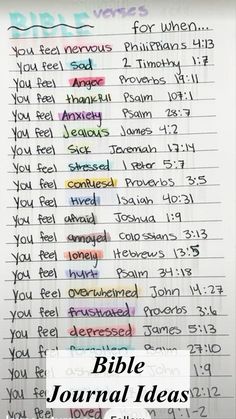 BIBLE verses
for when...
You feel nervous Philippians 4:13
You feel sad 2 Timothy 1:7
You feel Anger Proverbs 19:11
You feel thankful Psalm 107:1
You feel Anxiety Psalm 28:7
You feel Jealousy James 4:2
You feel Sick Jeremiah 17:14
You feel stressed 1 Peter 5:7
You feel confuesd Proverbs 3:5
You feel tired Isaiah 40:31
You feel afraid Joshua 1:9
You feel annoyed Colossians 3:13
You feel lonely Hebrews 13:5
You feel hurt Psalm 34:18
You feel overwhelmed John 14:27
You feel frustrated Proverbs 3:6
You feel depressed James 5:13
You feel Psalm 27:10
You feel 1:9
You feel 12:12
You feel loved
Bible
Journal Ideas
Follow